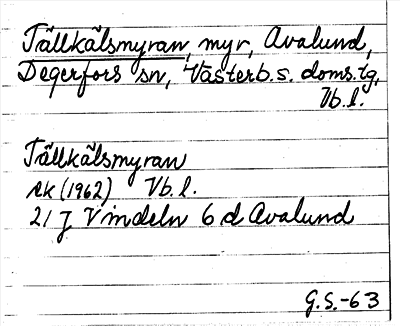 Tällkälsmyran, myr, Avalund,
Degerfors sn, Västerb.s. doms.tg,
Vb.l.
Tällkälsmyran
ek (1962) Vb.l.
21 J Vindeln 6 d Avalund
G.S.-63